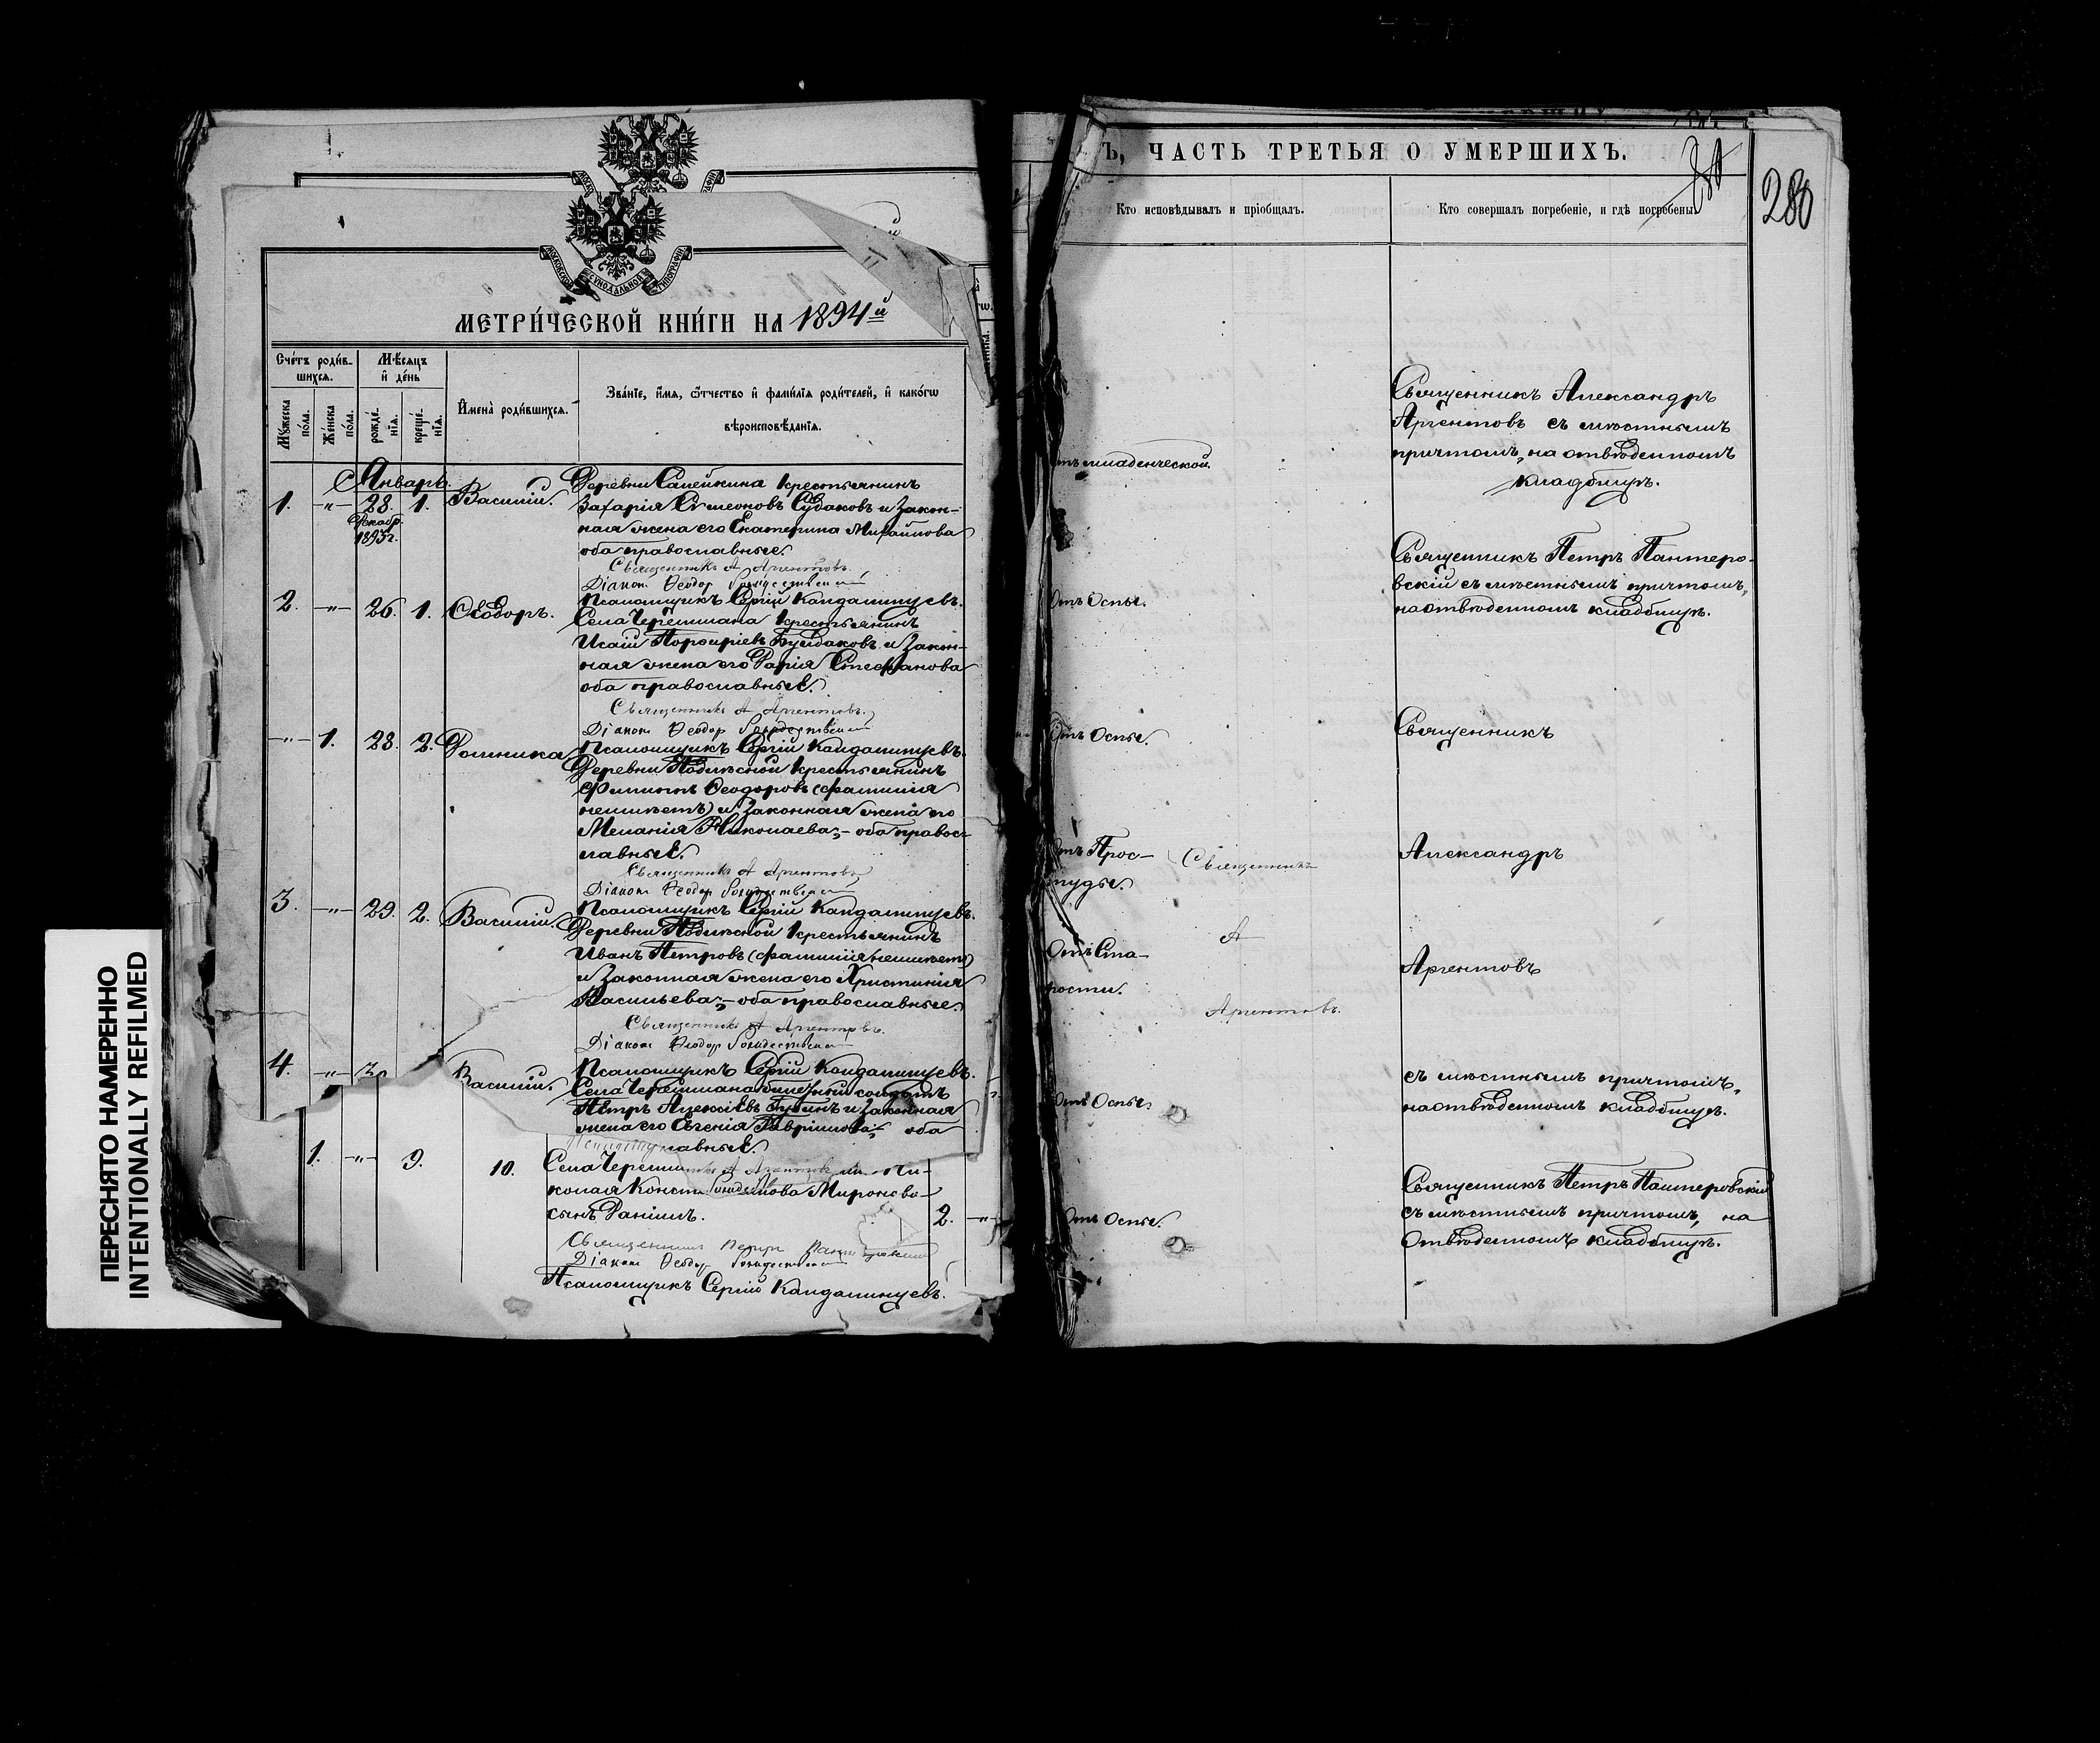 МЕТРИ́ЧЕСКОЙ КНИ́ГИ НА 1894й
Сче́тъ роди́в-
шихся.
Мѣ́сяцъ
и҆ де́нь
Мꙋжеска
по́ла.
Же́нска
по́ла.
рожде́-
нїѧ.
креще́-
нїѧ.
И҆мена̀ роди́вшихсѧ.
Зва́нїе, и҆́мѧ, ѻ҆́тчество и҆ фами́лїѧ роди́телей, и҆ како́гѡ
вѣроисповѣ́данїѧ.
Январь.
1. -"- 28. 1. Василій.
Декабр.
1893г.
Деревни Сапейкина крестьянинъ
Захарія Симеоновъ Судаковъ и закон-
ная жена его Екатерина Михайлова
оба православные.
Священникъ А Аргентовъ.
Діаконъ Ѳеодор Рождественскій
Псаломщикъ Сергій Кандалинцевъ.
2. -"- 26. 1. Ѳеодоръ.
Села Черемшана крестьянинъ
Исаій Порфиріевъ Булдаковъ и закон-
ная жена его Дарія Стефанова
оба православные.
Священникъ А Аргентовъ.
Діаконъ Ѳеодор Рождественскій
Псаломщикъ Сергій Кандалинцевъ.
-"- 1. 28. 2. Домника
Деревни крестьянинъ
Филиппъ Ѳеодоровъ (фамиліи
неимѣетъ) и законная жена его
Меланія Николаева, - оба правос-
лавные.
Священникъ А Аргентовъ
Діаконъ Ѳеодор Рождественскій
Псаломщикъ Сергій Кандалинцевъ.
3. -"- 29. 2. Василій.
Деревни крестьянинъ
Иванъ Петровъ (фамиліи неимѣетъ)
и законная жена его Христинія
Васильева, - оба православные.
Священникъ А Аргентовъ.
Діаконъ Ѳеодор Рождественскій
Псаломщикъ Сергій Кандалинцевъ.
4. -"- Василій.
Села Черемшана солдатъ
Петръ Алексіевъ Губинъ и законная
жена его Евгенія Гаврілова, - оба
лавные.
1. -"- 9. 10.
Села Черемш Ни-
колая Конст Миронова
сынъ Даніилъ. 2. -"-
Священникъ Петръ
Діаконъ Ѳеодор Рождественскій
Псаломщикъ Сергій Кандалинцевъ.
Ъ, ЧАСТЬ ТРЕТЬЯ О УМЕРШИХЪ.
280
Кто исповѣдывалъ и пріобщалъ.
Кто совершалъ погребеніе, и гдѣ погребены.
младенческой.
Священникъ Александръ
Аргентовъ съ мѣстнымъ
причтомъ, на отвѣденномъ
кладбищѣ.
Отъ Оспы.
Священникъ Петръ Пантеро-
вскій съ мѣстнымъ причтомъ,
на отвѣденномъ кладбищѣ.
Отъ Оспы.
Священникъ
Отъ Прос-
туды.
Священникъ
Александръ
Отъ Ста-
рости.
А
Аргентовъ
Аргентовъ.
Отъ Оспы.
съ мѣстнымъ причтомъ,
на отвѣденномъ кладбищѣ.
Отъ Оспы.
Священникъ Петръ Пантеровскій
съ мѣстнымъ причтомъ, на
отвѣденномъ кладбищѣ.
ПЕРЕСНЯТО НАМЕРЕННО
INTENTIONALLY REFILMED